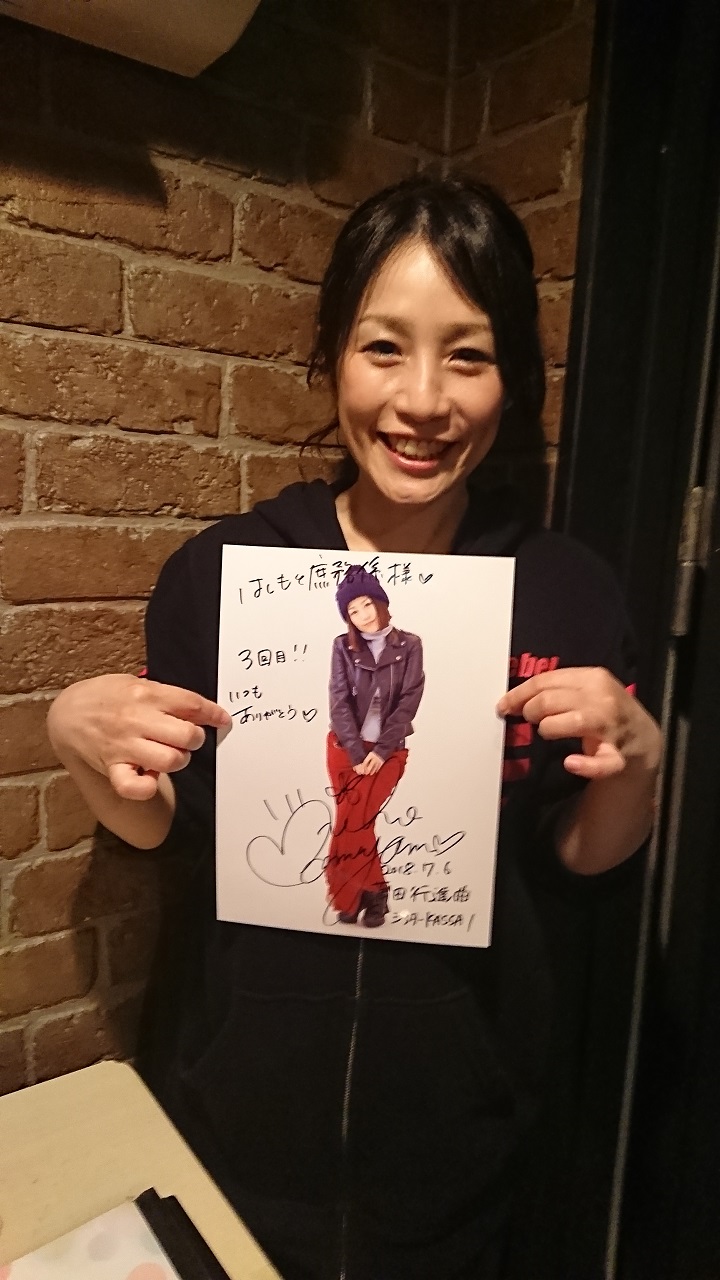 はしもと庶務係様♡
3回目!!
いつも
ありがとう♡
2018.7.6
行進曲
KASSAI
ebel